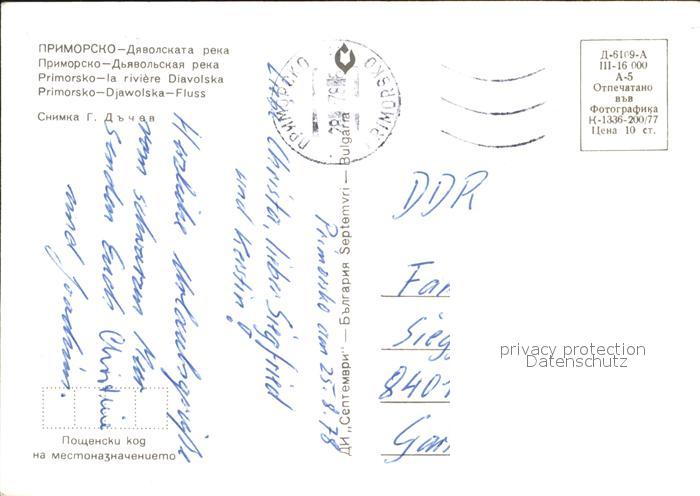 ПРИМОРСКО—Дяволската река
Приморско—Дьявольская река
Primorsko—la rivière Diavolska
Primorsko—Djawolska—Fluss
Снимка Г. Дъчев
ПРИМОРСКО
PRIMORSKO
Д-6109-А
III-16 000
А-5
Отпечатано
във
Фотографика
К-1336-200/77
Цена 10 ст.
ДИ „Септември" — България Septemvri — Bulgaria
Primorsko am 25.8.78
Liebe Christa, lieber Siegfried
und Kerstin!
Herzliche Urlaubsgrüße
vom schwarzen Meer
senden Euch Christine
und Joachim.
DDR
Fam
Sieg
8401
Gar
privacy protection
Datenschutz
Пощенски код
на местоназначението